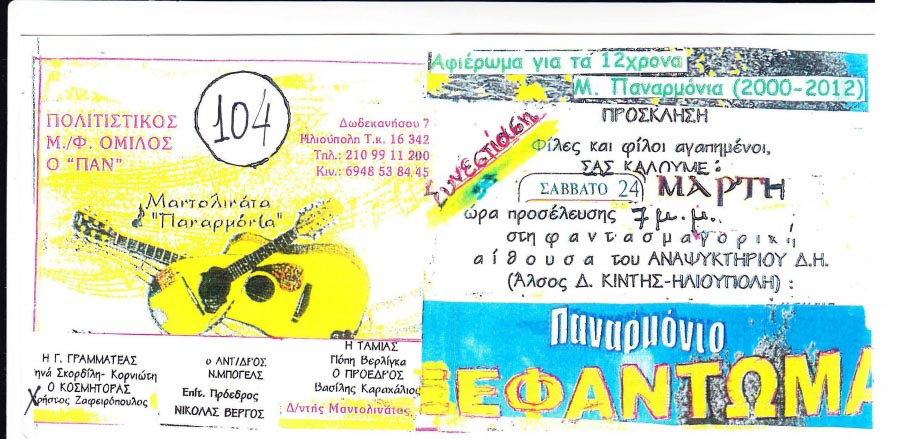 ΠΟΛΙΤΙΣΤΙΚΟΣ
Μ./Φ. ΟΜΙΛΟΣ
Ο "ΠΑΝ"
104
Δωδεκανήσου 7
Ηλιούπολη Τ.κ. 16 342
Τηλ.: 210 99 11 200
Κιν.: 6948 53 84 45
Μαντολινάτα
"Παναρμόνια"
Η Γ. ΓΡΑΜΜΑΤΕΑΣ
ηνά Σκορδίλη- Κορνιώτη
Ο ΚΟΣΜΗΤΟΡΑΣ
Χρήστος Ζαφειρόπουλος
Ο ΑΝΤ/ΔΡΟΣ
Ν.ΜΠΟΓΕΛΣ
Επίτ. Πρόεδρος
ΝΙΚΟΛΑΣ ΒΕΡΓΟΣ
Η ΤΑΜΙΑΣ
Πόπη Βερλίγκα
Ο ΠΡΟΕΔΡΟΣ
Βασίλης Καρακάλιος
Δ/ντής Μαντολινάτας
Αφιέρωμα για τά 12χρονα
Μ. Παναρμόνια (2000-2012)
ΠΡΟΣΚΛΗΣΗ
Συνεστίαση
Φίλες και φίλοι αγαπημένοι,
ΣΑΣ ΚΑΛΟΥΜΕ:
ΣΑΒΒΑΤΟ 24 ΜΑΡΤΗ
ώρα προσέλευσης 7 μ.μ.
στη φαντασμαγορική
αίθουσα του ΑΝΑΨΥΚΤΗΡΙΟΥ Δ.Η.
(Άλσος Δ. ΚΙΝΤΗΣ-ΗΛΙΟΥΠΟΛΗ) :
Παναρμόνιο
ΒΕΦΑΝΤΩΜΑ